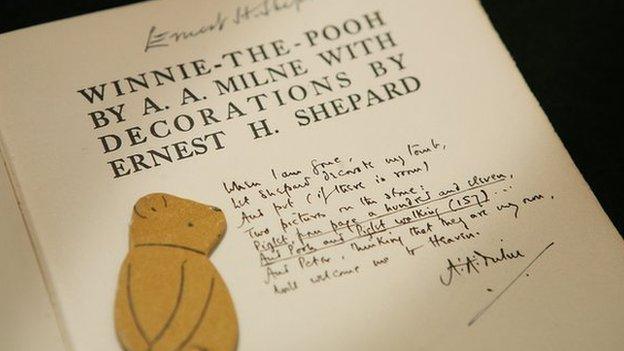 Ernest H. Shepard
WINNIE-THE-POOH
BY A. A. MILNE WITH
DECORATIONS BY
ERNEST H. SHEPARD
When I am gone,
Let Shepard decorate my tomb,
And put (if there is room)
Two pictures on the stone:
Piglet, from page a hundred and eleven,
And Pooh and Piglet walking (157)...
And Peter, thinking that they are my own,
Will welcome me to Heaven.
A. A. Milne